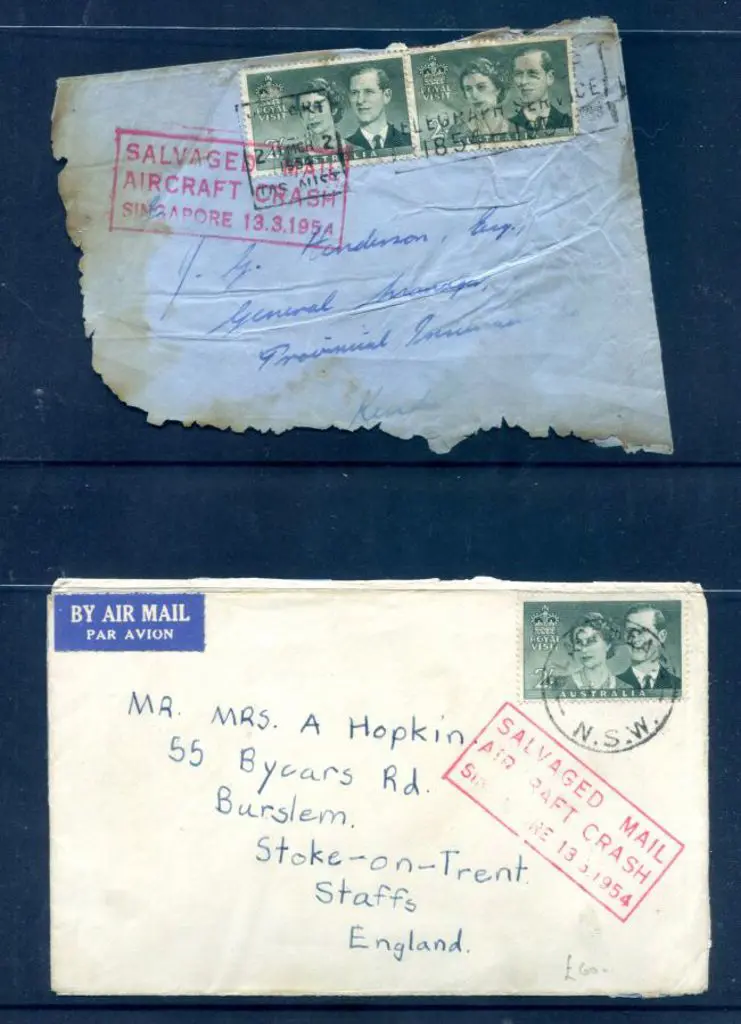 ROYAL VISIT
2/-
AUSTRALIA
ROYAL VISIT
2/-
AUSTRALIA
TELEGRAPH SERVICE
1854
1954
TAS
SALVAGED MAIL
AIRCRAFT CRASH
SINGAPORE 13.3.1954
J. G. Henderson, Esq.,
General Manager,
Provincial
BY AIR MAIL
PAR AVION
ROYAL VISIT
2/-
AUSTRALIA
N.S.W.
MR. MRS. A Hopkin.
55 Bycars Rd.
Burslem.
Stoke-on-Trent.
Staffs
England.
SALVAGED MAIL
AIRCRAFT CRASH
13.3.1954
£60-